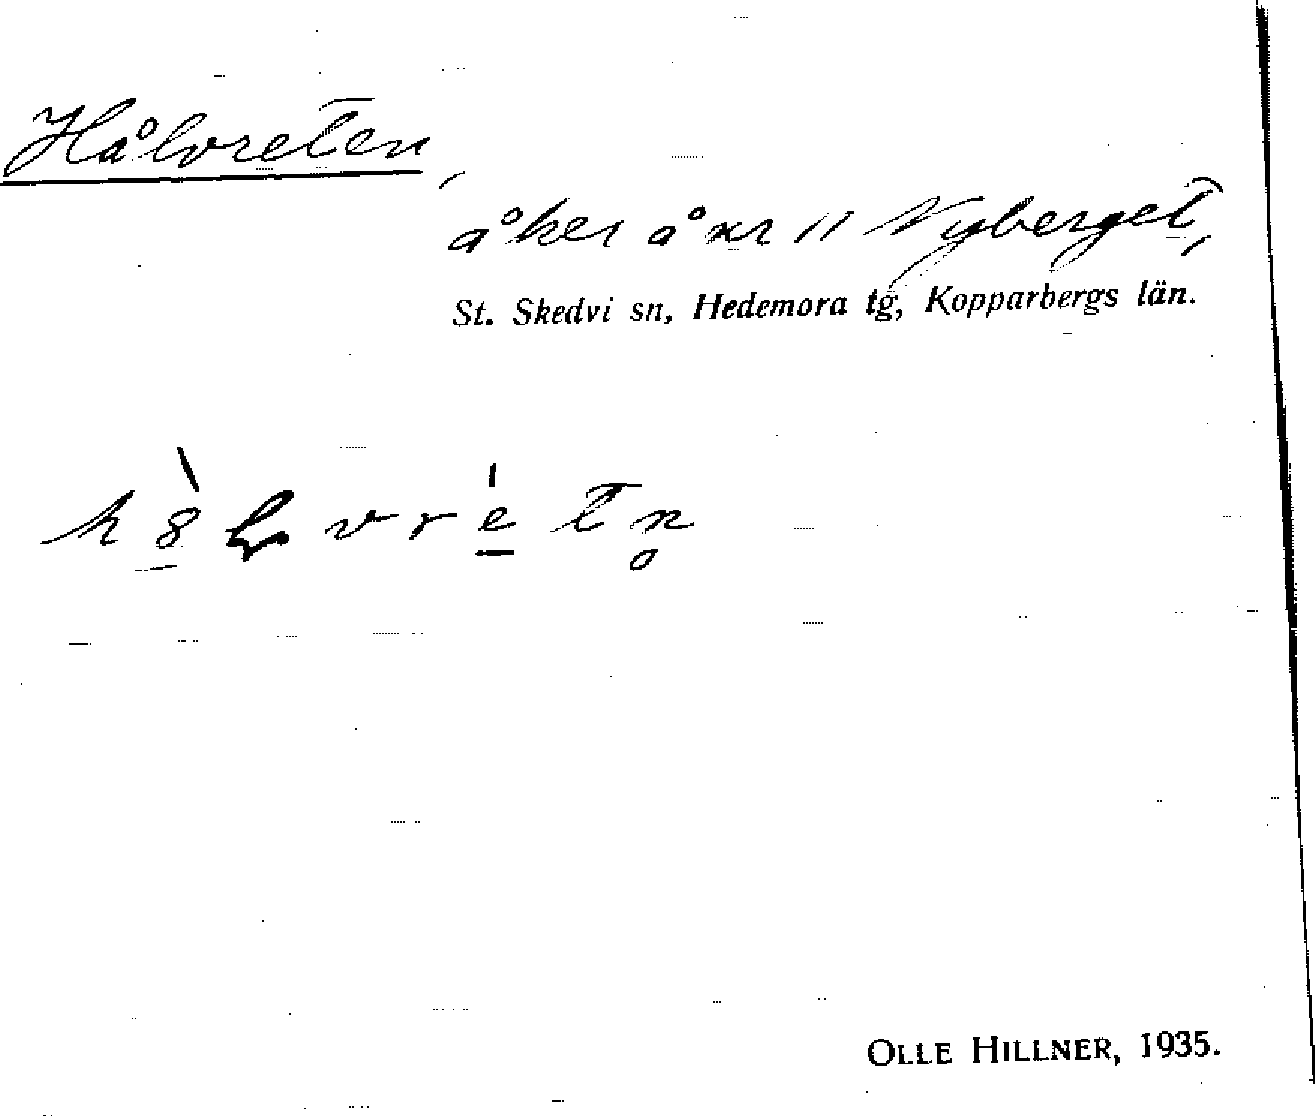 Hålvreten,
åker å nr 11 Nyberget,
St. Skedvi sn, Hedemora tg, Kopparbergs län.
OLLE HILLNER, 1935.